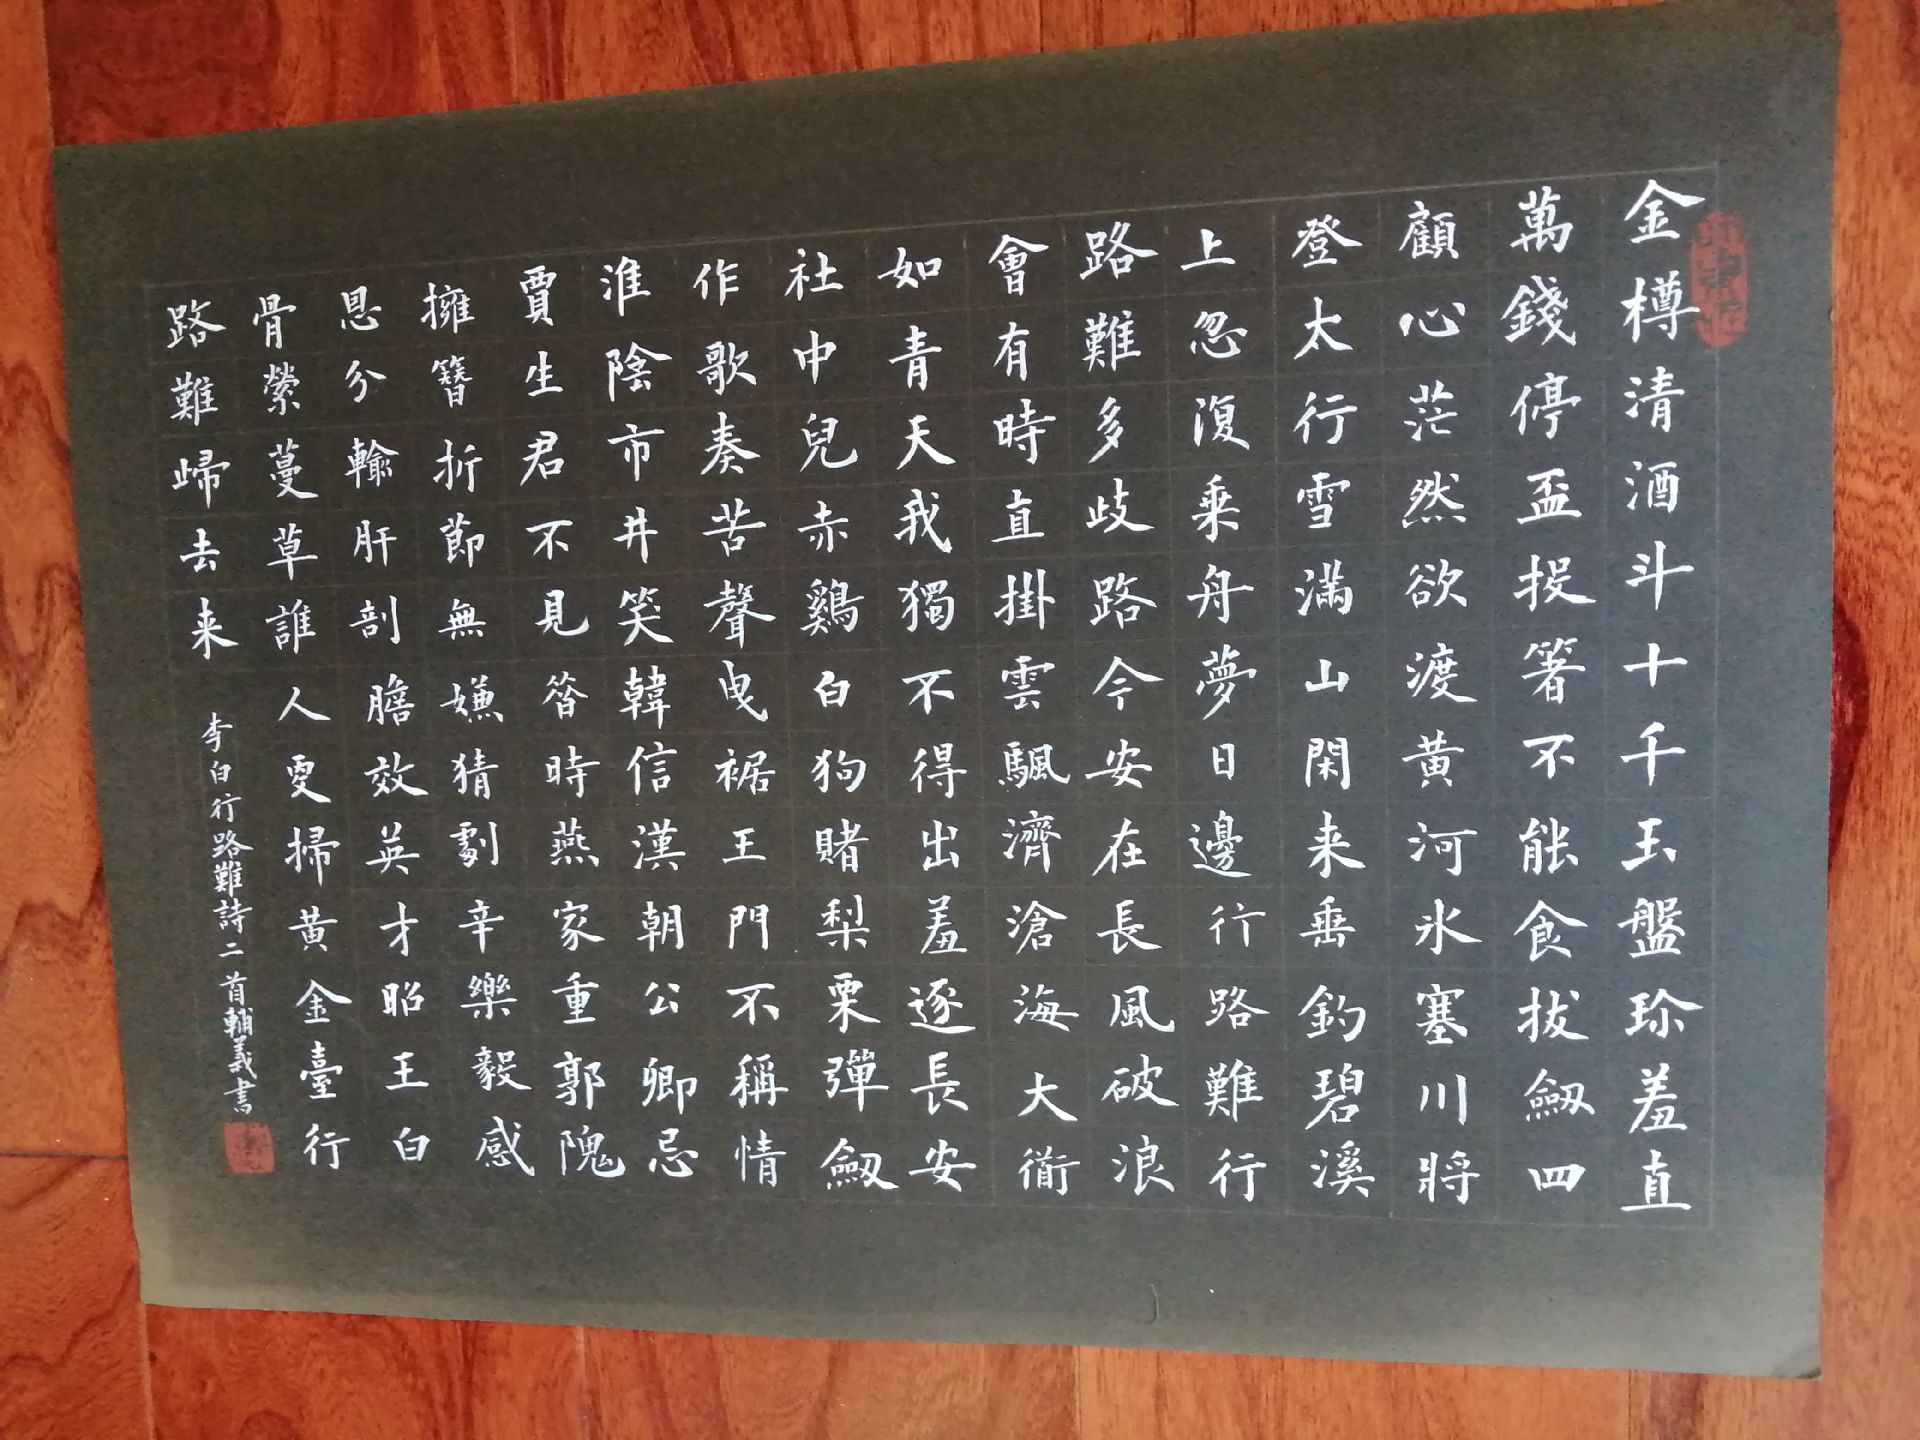 金樽清酒斗十千玉盤珍羞直
萬錢停盃投箸不能食拔劔四
顧心茫然欲渡黃河氷塞川將
登太行雪滿山閑来垂釣碧溪
上忽復乗舟夢日邊行路難行
路難多歧路今安在長風破浪
會有時直掛雲颿濟滄海大衜
如青天我獨不得出羞逐長安
社中兒赤鷄白狗賭梨栗彈劔
作歌奏苦聲曳裾王門不稱情
淮陰市井笑韓信漢朝公卿忌
賈生君不見昝時燕家重郭隗
擁篲折節無嫌猜劇辛樂毅感
恩分輸肝剖膽效英才昭王白
骨縈蔓草誰人更掃黃金臺行
路難歸去来
李白行路難詩二首輔義書